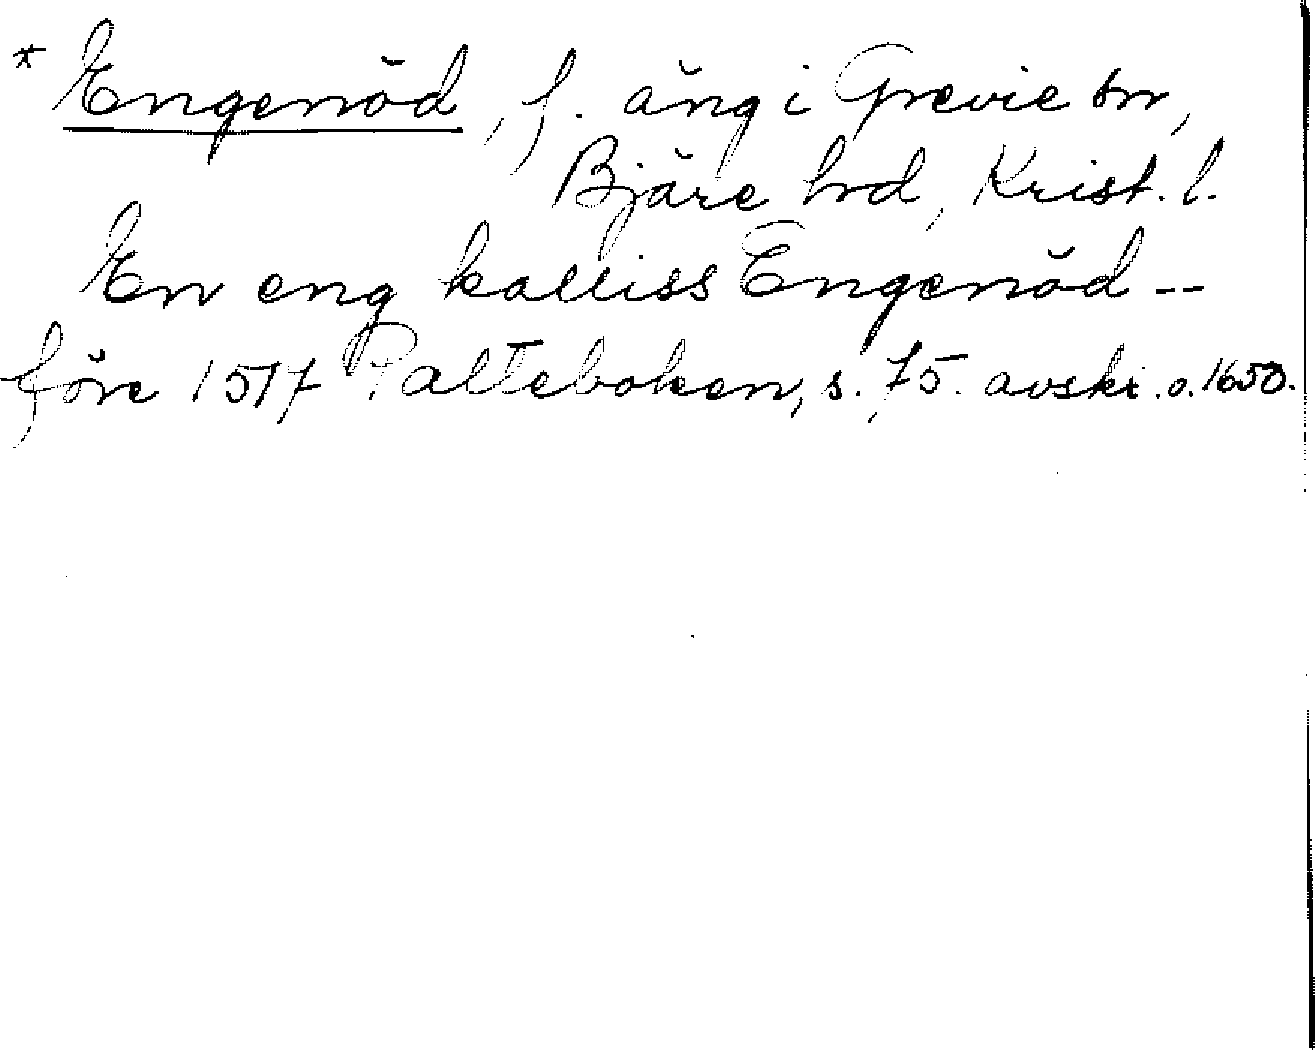 * Engenöd, f. äng i Grevie sn,
Bjäre hd, Krist. l.
En eng kalliss Engenöd --
före 1517 Palteboken, s. 75. avskr. o. 1650.